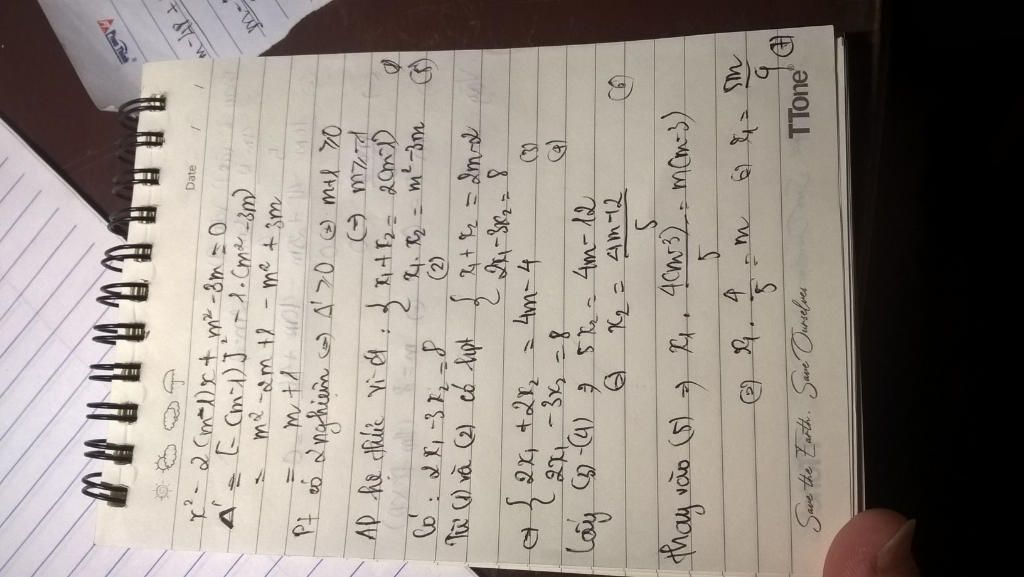 Date / /
x² - 2(m-1)x + m² - 3m = 0
Δ' = [-(m-1)]² - 1.(m² - 3m)
= m² - 2m + 1 - m² + 3m
= m + 1
Pt có 2 nghiệm ⇔ Δ' ≥ 0 ⇔ m+1 ≥ 0
⇔ m ≥ -1
AP hệ thức vi ét : { x₁ + x₂ = 2(m-1) (1)
x₁.x₂ = m² - 3m (5)
Có : 2x₁ - 3x₂ = 8 (2)
Từ (1) và (2) có hpt { x₁ + x₂ = 2m-2
2x₁ - 3x₂ = 8
⇔ { 2x₁ + 2x₂ = 4m - 4 (3)
2x₁ - 3x₂ = 8 (4)
Lấy (3) - (4) ⇒ 5x₂ = 4m - 12
⇔ x₂ = (4m-12)/5 (6)
thay vào (5) ⇒ x₁ . 4(m-3)/5 = m(m-3)
⇔ x₁ . 4/5 = m ⇔ x₁ = 5m/4 (7)
Save the Earth. Save Ourselves
TTone